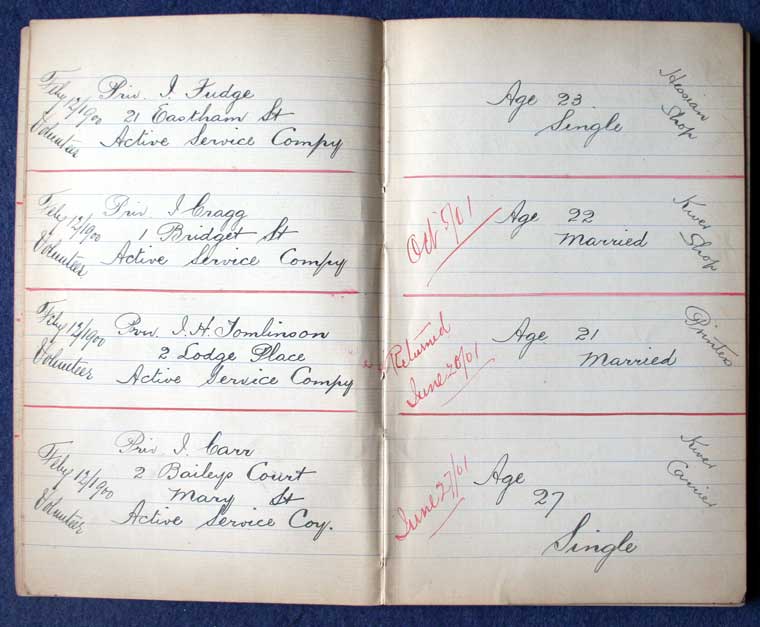 Feby 12/1900
Volunteer
Priv. J. Fudge
21 Eastham St
Active Service Compy
Age 23
Single
Hessian
Shop
Feby 12/1900
Volunteer
Priv J Cragg
1 Bridget St
Active Service Compy
Oct 5/01
Age 22
Married
Kiver
Shop
Feby 12/1900
Volunteer
Priv. J. H. Tomlinson
2 Lodge Place
Active Service Compy
Returned
June 20/01
Age 21
Married
Printers
Feby 12/1900
Volunteer
Priv J. Carr
2 Baileys Court
Mary St
Active Service Coy.
June 27/01
Age
27
Single
Kiver
Carrier